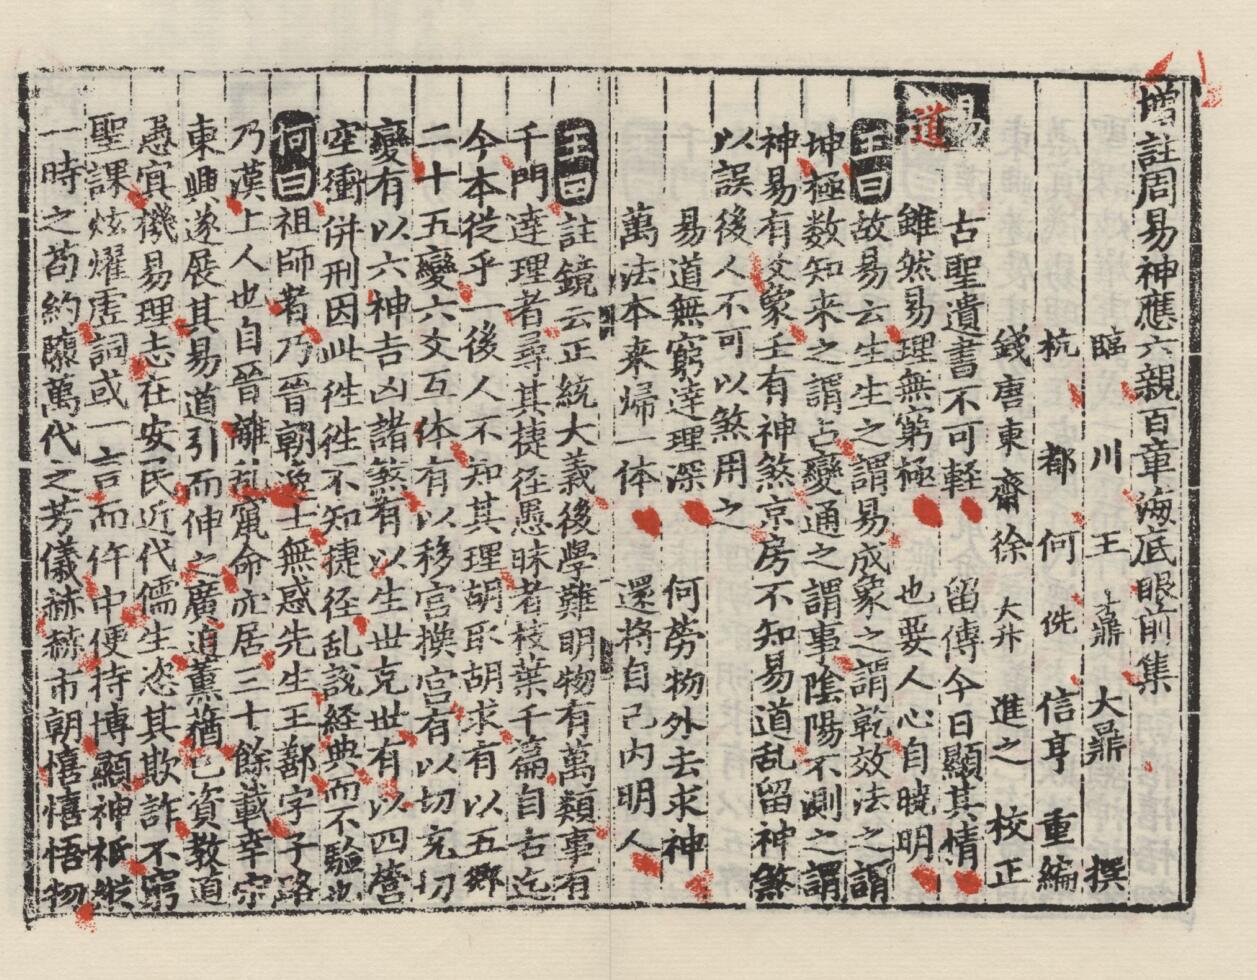 增註周易神應六親百章海底眼前集
臨川王鼎大鼎撰
杭都何侁信亨重編
錢唐東齋徐大升進之校正
易道
古聖遺書不可輕 留傳今日顯其情
雖然易理無窮極 也要人心自曉明
王曰故易云生生之謂易成象之謂乾效法之謂
坤極数知来之謂占變通之謂事陰陽不測之謂
神易有爻象壬有神煞京房不知易道乱留神煞
以誤後人不可以煞用之
易道無窮達理深 何勞物外去求神
萬法本来歸一体 還将自己内明人
王曰註鏡云正統大義後學難明物有萬類事有
千門達理者尋其捷径愚昧者枝葉千篇自古迄
今本從乎一後人不知其理胡取胡求有以五鄉
二十五變六爻互体有以移宫換宫有以切克切
變有以六神吉凶諸煞有以生世克世有以四營
空衝併刑因此徃徃不知捷径乱說経典而不驗也
何曰祖師者乃晉朝逸士無惑先生王鄯字子路
乃漢上人也自晉離乱竄命亦居三十餘載幸宗
東興遂展其易道引而伸之廣迫薰蕕已資教道
愚宜機易理志在安民近代儒生恣其欺詐不窮
聖課炫燿虚詞或一言而倅中便恃博顯神祇縱
一時之苟約隳萬代之芳儀赫赫市朝憘憘悟物